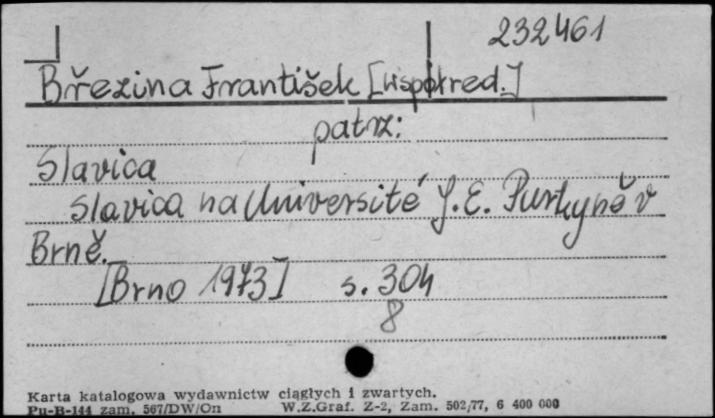 232461
Březina František [współred.]
patrz:
Slavica
Slavica na Université J. E. Purkyně v
Brně.
[Brno 1973] s. 304
8
Karta katalogowa wydawnictw ciągłych i zwartych.
Pu-B-144 zam. 567/DW/On W.Z.Graf. Z-2, Zam. 502/77, 6 400 000